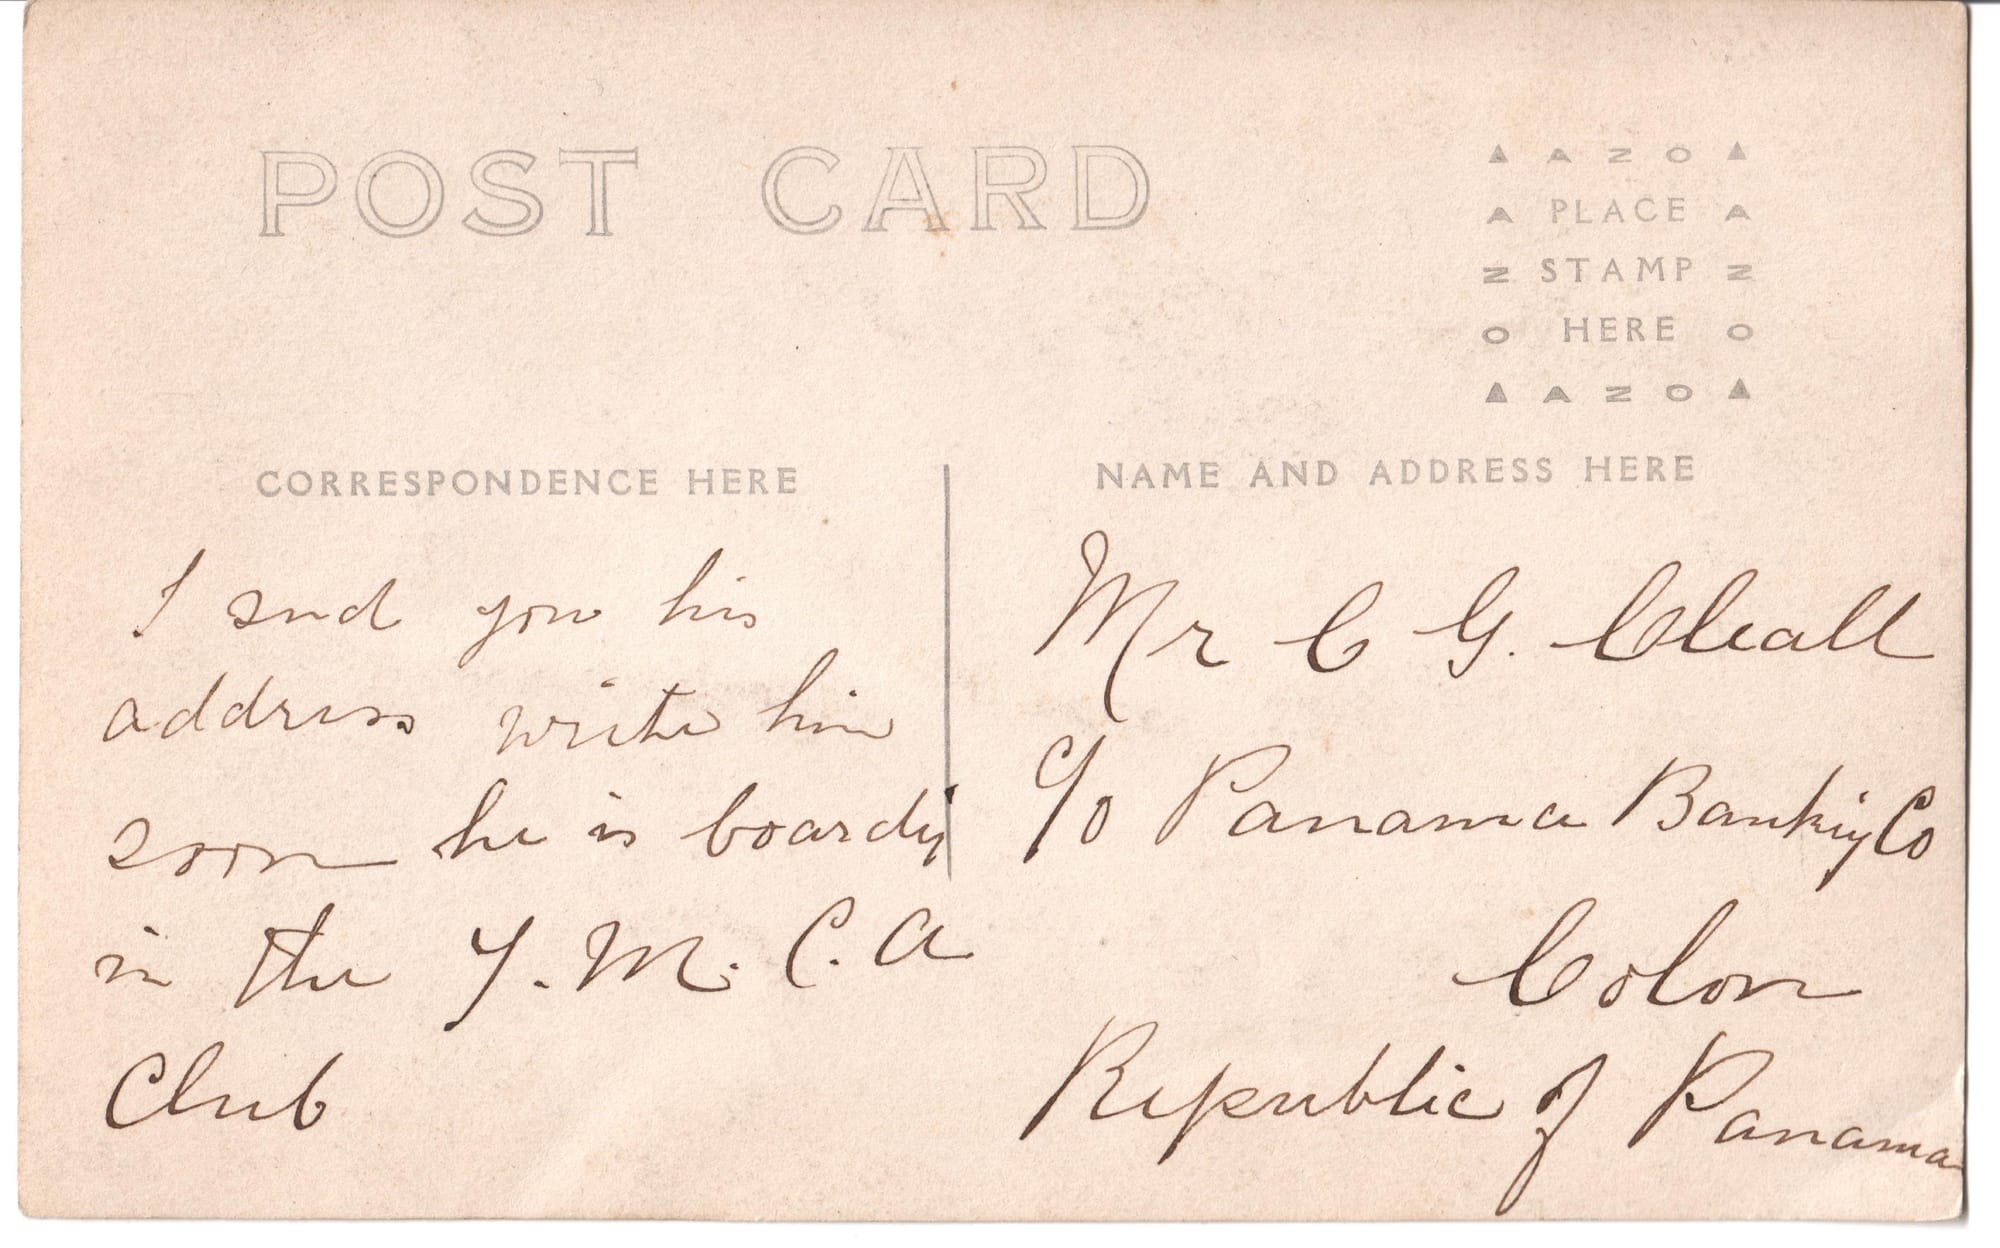 POST CARD
▲ A Z O ▲
A PLACE A
Z STAMP Z
O HERE O
▲ A Z O ▲
CORRESPONDENCE HERE
I send you his
address write him
soon he is boardig
in the Y. M. C. A
Club
NAME AND ADDRESS HERE
Mr C G. Cleall
c/o Panama Banking Co
Colon
Republic of Panama